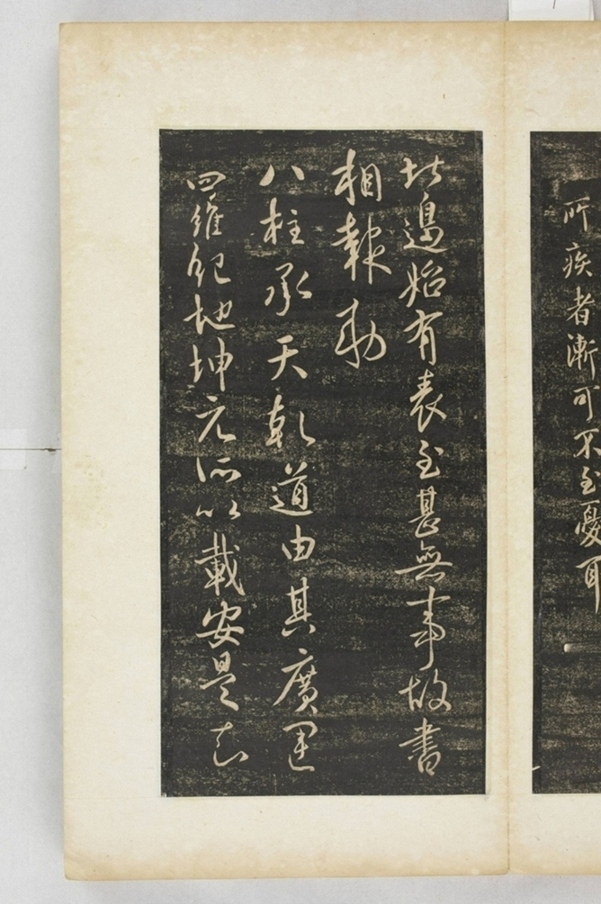 所疾者漸可不至憂耳
北邊始有表至甚無事故書
相報勅
八柱承天乾道由其廣運
四維紀地坤元所以載安是知